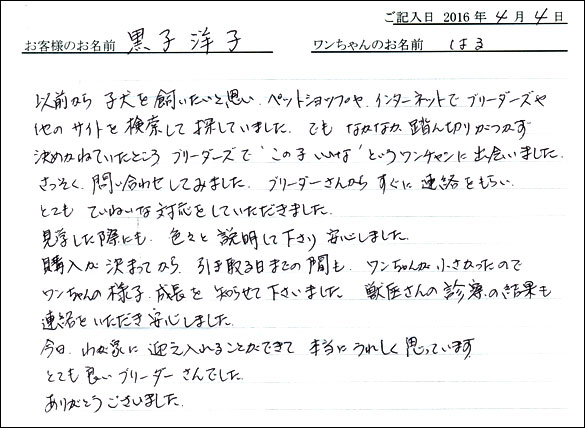 ご記入日 2016 年 4 月 4 日
お客様のお名前 黒子 洋子 ワンちゃんのお名前 はる
以前から 子犬を飼いたいと思い、ペットショップや、インターネットで ブリーダーズや
他の サイトを 検索して 探していました。でも なかなか 踏ん切りがつかず
決めかねていたところ ブリーダーズで 'この子 いいな' という ワンチャンに 出会いました。
さっそく、問い合わせしてみました。ブリーダーさんから すぐに 連絡をもらい、
とても ていねいな 対応をしていただきました。
見学した際にも、色々と 説明して 下さり 安心しました。
購入が 決まってから、引き取る日までの 間も、ワンちゃんが 小さかったので
ワンちゃんの 様子、成長を 知らせて 下さいました。獣医さんの 診察の 結果も
連絡を いただき 安心しました。
今日、わが家に 迎え入れることができて 本当に うれしく 思っています
とても良い ブリーダーさんでした。
ありがとうございました。